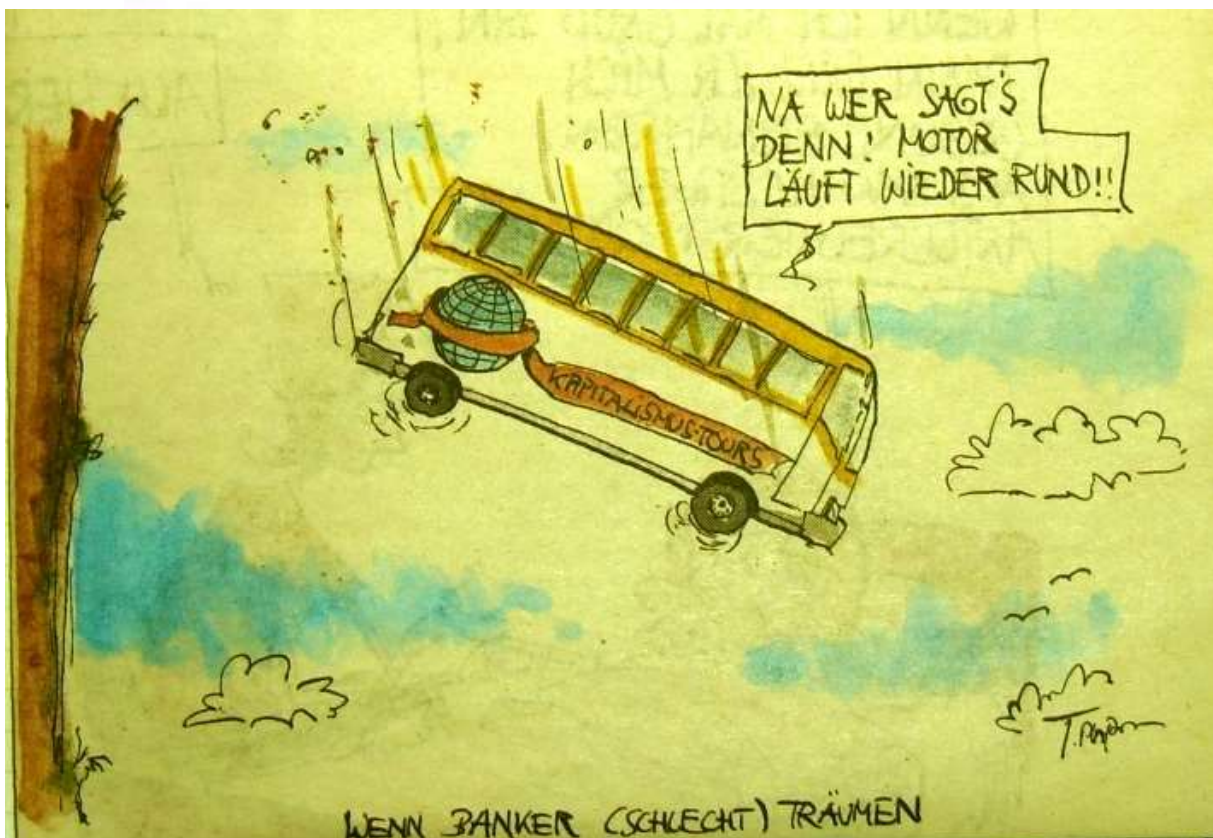 NA WER SAGT'S
DENN! MOTOR
LÄUFT WIEDER RUND!!
KAPITALISMUS-TOURS
WENN BANKER (SCHLECHT) TRÄUMEN